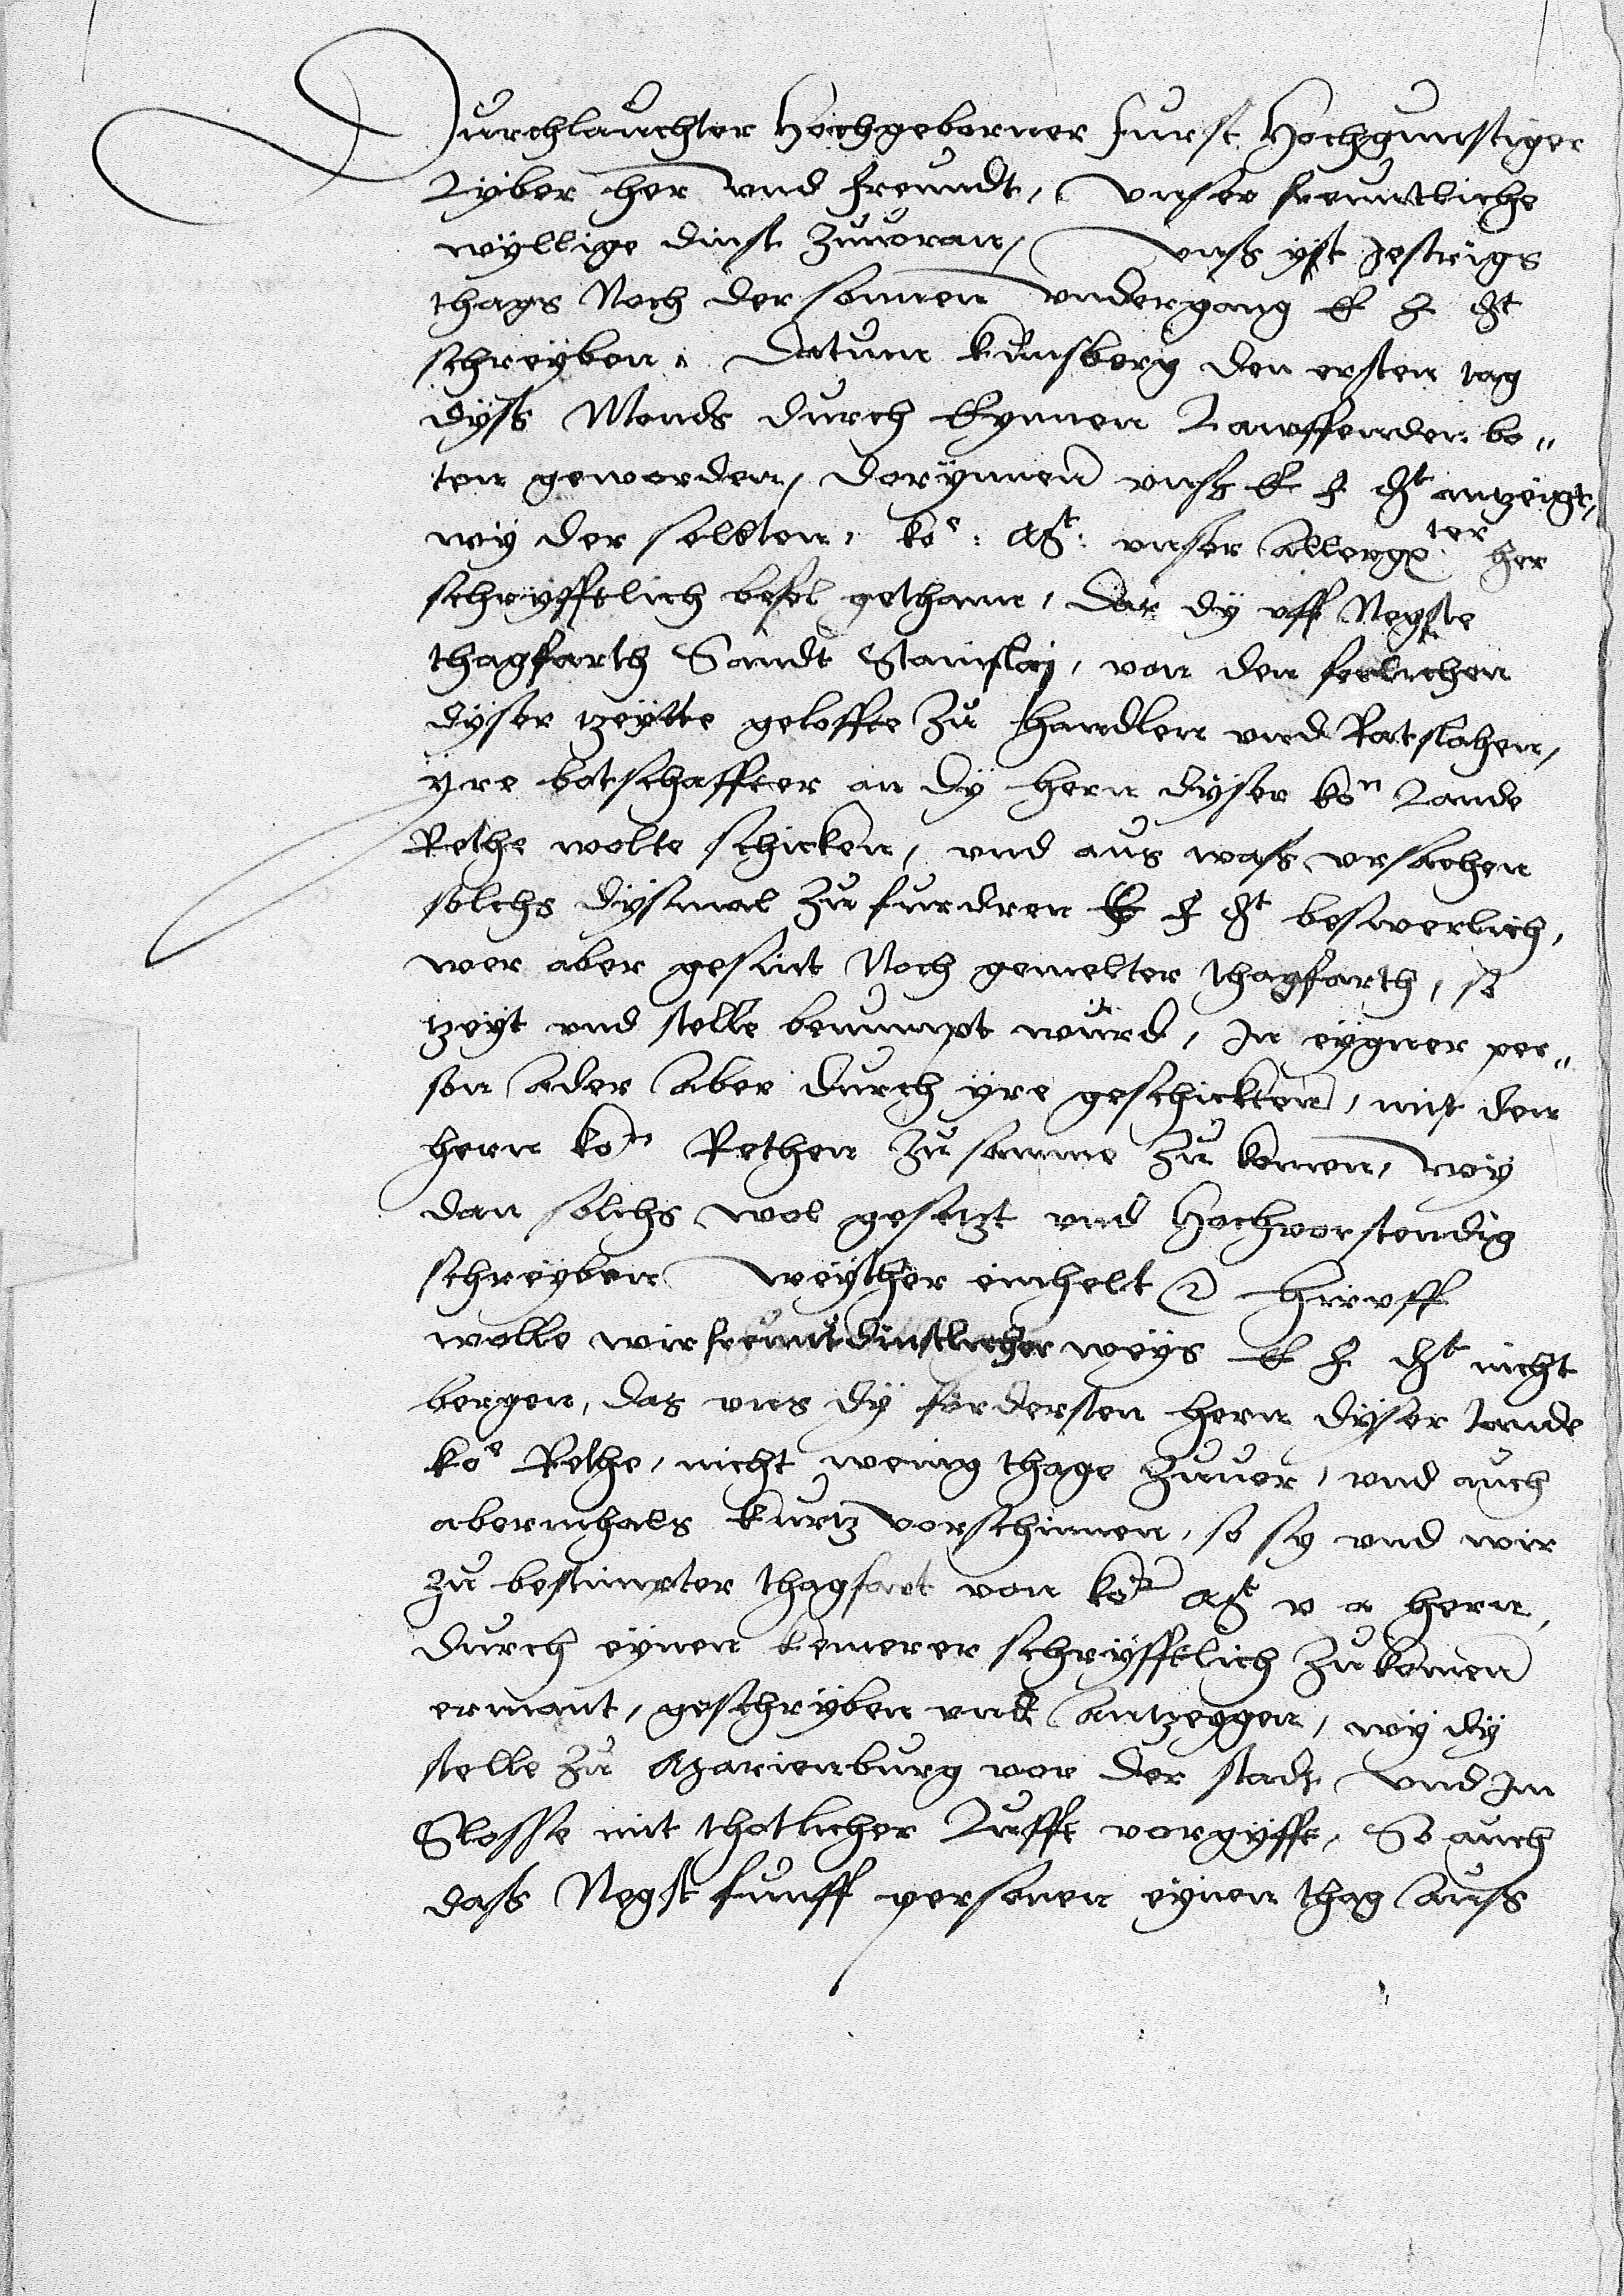 Durchlauchter Hochgeborner Furst Hochgunstiger
Lyber her vnd freundt, vnser freuntliche
wyllige dinst zuuoran, vnss yst Jestrigs
thags Noch der sonnen vndergang E F Gt
schreyben, Datum kunsberg den ersten tag
dyss Monds durch Eynnen Lawffenden bo„
ten geworden, dorynnen vnss E F Gt antzeigt,
wy der selbten, koe: Mt: vnser allergnter her
schryfftlich befel gethann, Das dy vff Negste
thagfarth Sandt Stanislaj, von den ferlichen
dyser tzeytte geloffte zu handlen vnd Ratslahen,
yre botschaffter an dy hern dyser kon Lande
Rethe wolte schicken, vnd aus was vrsachen
solchs dysmal zu furdren E F Gt beswerlich,
wer aber gesint Noch gemelter thagfarth, so
tzeyt vnd stelle benumpt wurd, In eygner per„
son ader aber durch yre geschickten, mit den
hern kon Rethen zu samme zu komen, wy
dan solchs wol gesetzt vnd Hochvorstendig
schreyben weyther einhelt Hirvff
wolle wir freuntdinstlicher weys E F Gt nicht
bergen, das vns dy fordersten hern dyser lande
koe Rethe, nicht wenig thage zuuor, vnd auch
abermhals kurtz vorschinnen, so sy vnd wir
zu bestimpter thagfart von kor Mt v a hern,
durch eynen kemerer schryfftlich zu komen
ermant, geschryben vnd antzeygen, wy dy
stelle zu Marienburg vor der stadt vnd Im
Slosse mit thotlicher Lufft vorgyfft, So auch
dass Negst funff personen eynen thag auss